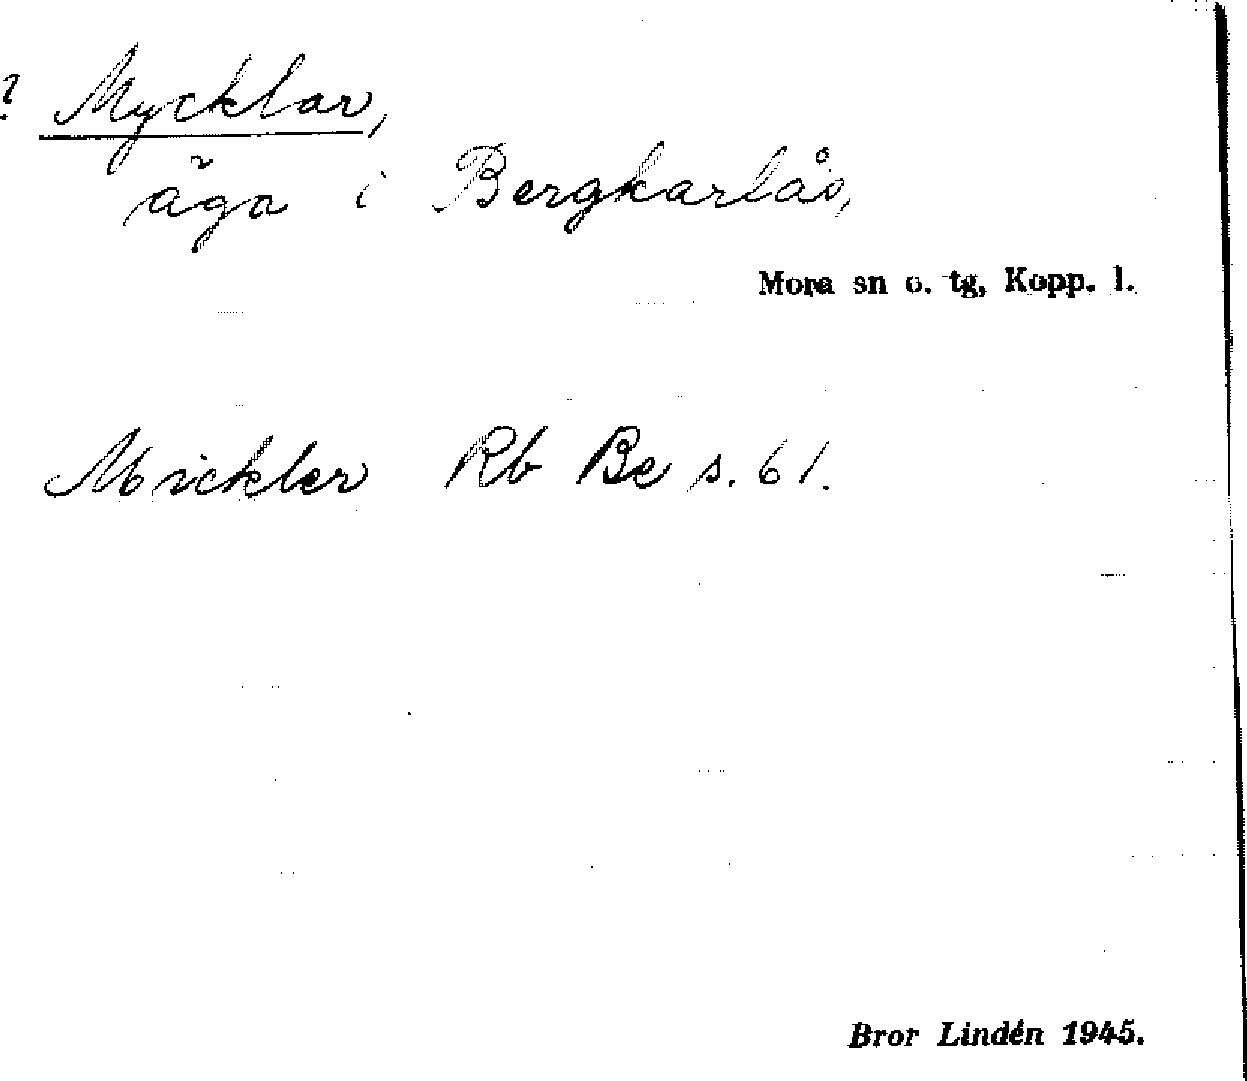 ? Mycklar,
äga i Bergkarlås,
Mora sn o. tg, Kopp. l.
Mickler Rb Be s. 61.
Bror Lindén 1945.